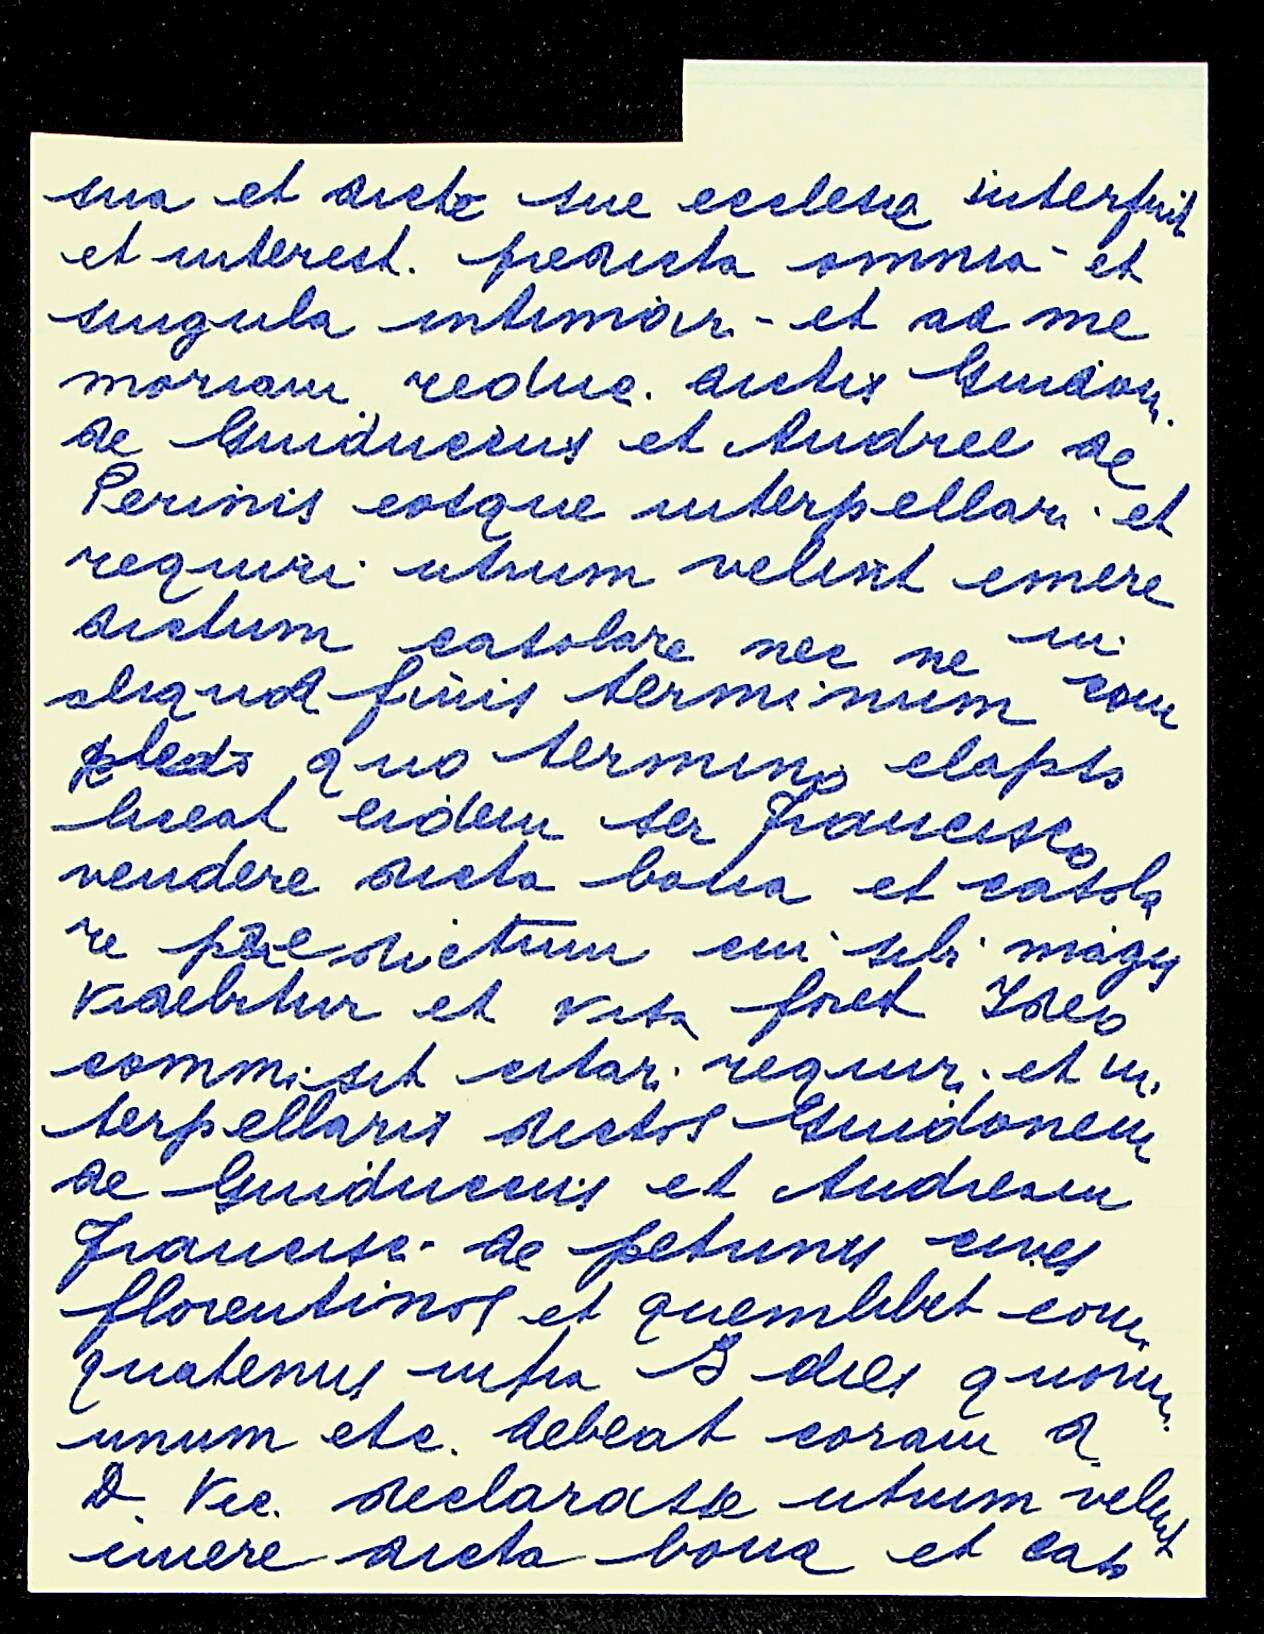 sua et dicte sue ecclesie interfuit
et interest. predicta omnia et
singula intimari - et ad me
moriam reduc. dictis Guidon.
de Guiduccius et Andree de
Perinis eosque interpellari et
requiri utrum velint emere
dictum casolare nec ne in
aliquod finis terminum com
quo termino elapso
liceat eidem ser Francisco
vendere dicta bona et casola
re predictum cui sibi magis
videbitur et foret Ideo
commisit citari requiri et in
terpellaris dictos Guidonem
de Guiduccis et Andream
Francisci de petrinis cives
florentinos et quemlibet eoru.
quatenus infra 3 dies quoru.
unum etc. debeat coram d.
D. Vic. declarasse utrum velint
emere dicta bona et caso